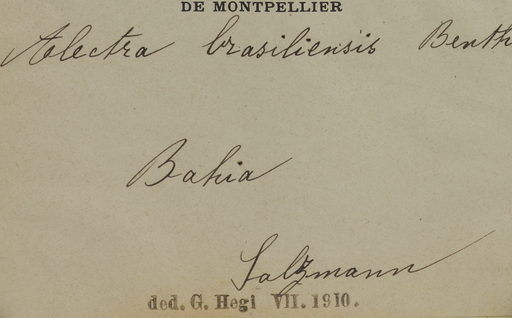 DE MONTPELLIER
Alectra brasiliensis Benth
Bahia
Salzmann
ded. G. Hegi VII. 1910.